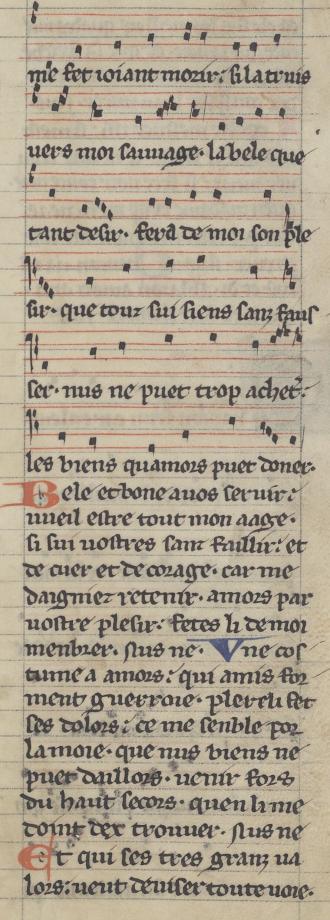 me fet ioiant morir: si la truis
uers moi sauuage· la bele que
tant desir· fera de moi son ple
sir· que touz sui siens sanz faus
ser· nus ne puet trop achet̾·
les biens quamors puet doner·
Bele et bone a uos seruir:
uueil estre tout mon aage·
si sui uostres sanz faillir: et
de cuer et de corage· car me
daigniez retenir· amors par
uostre plesir: fetes li de moi
menbrer· Nus ne· Vne cos
tume a amors: qui amis for
ment guerroie· plere li fet
ses dolors: ce me senble por
la moie· que nus biens ne
puet daillors· uenir fors
du haut secors· quen li me
doint dex trouuer· Nus ne
Et qui ses tres granz ua
lors: ueut deuiser toute uoie·